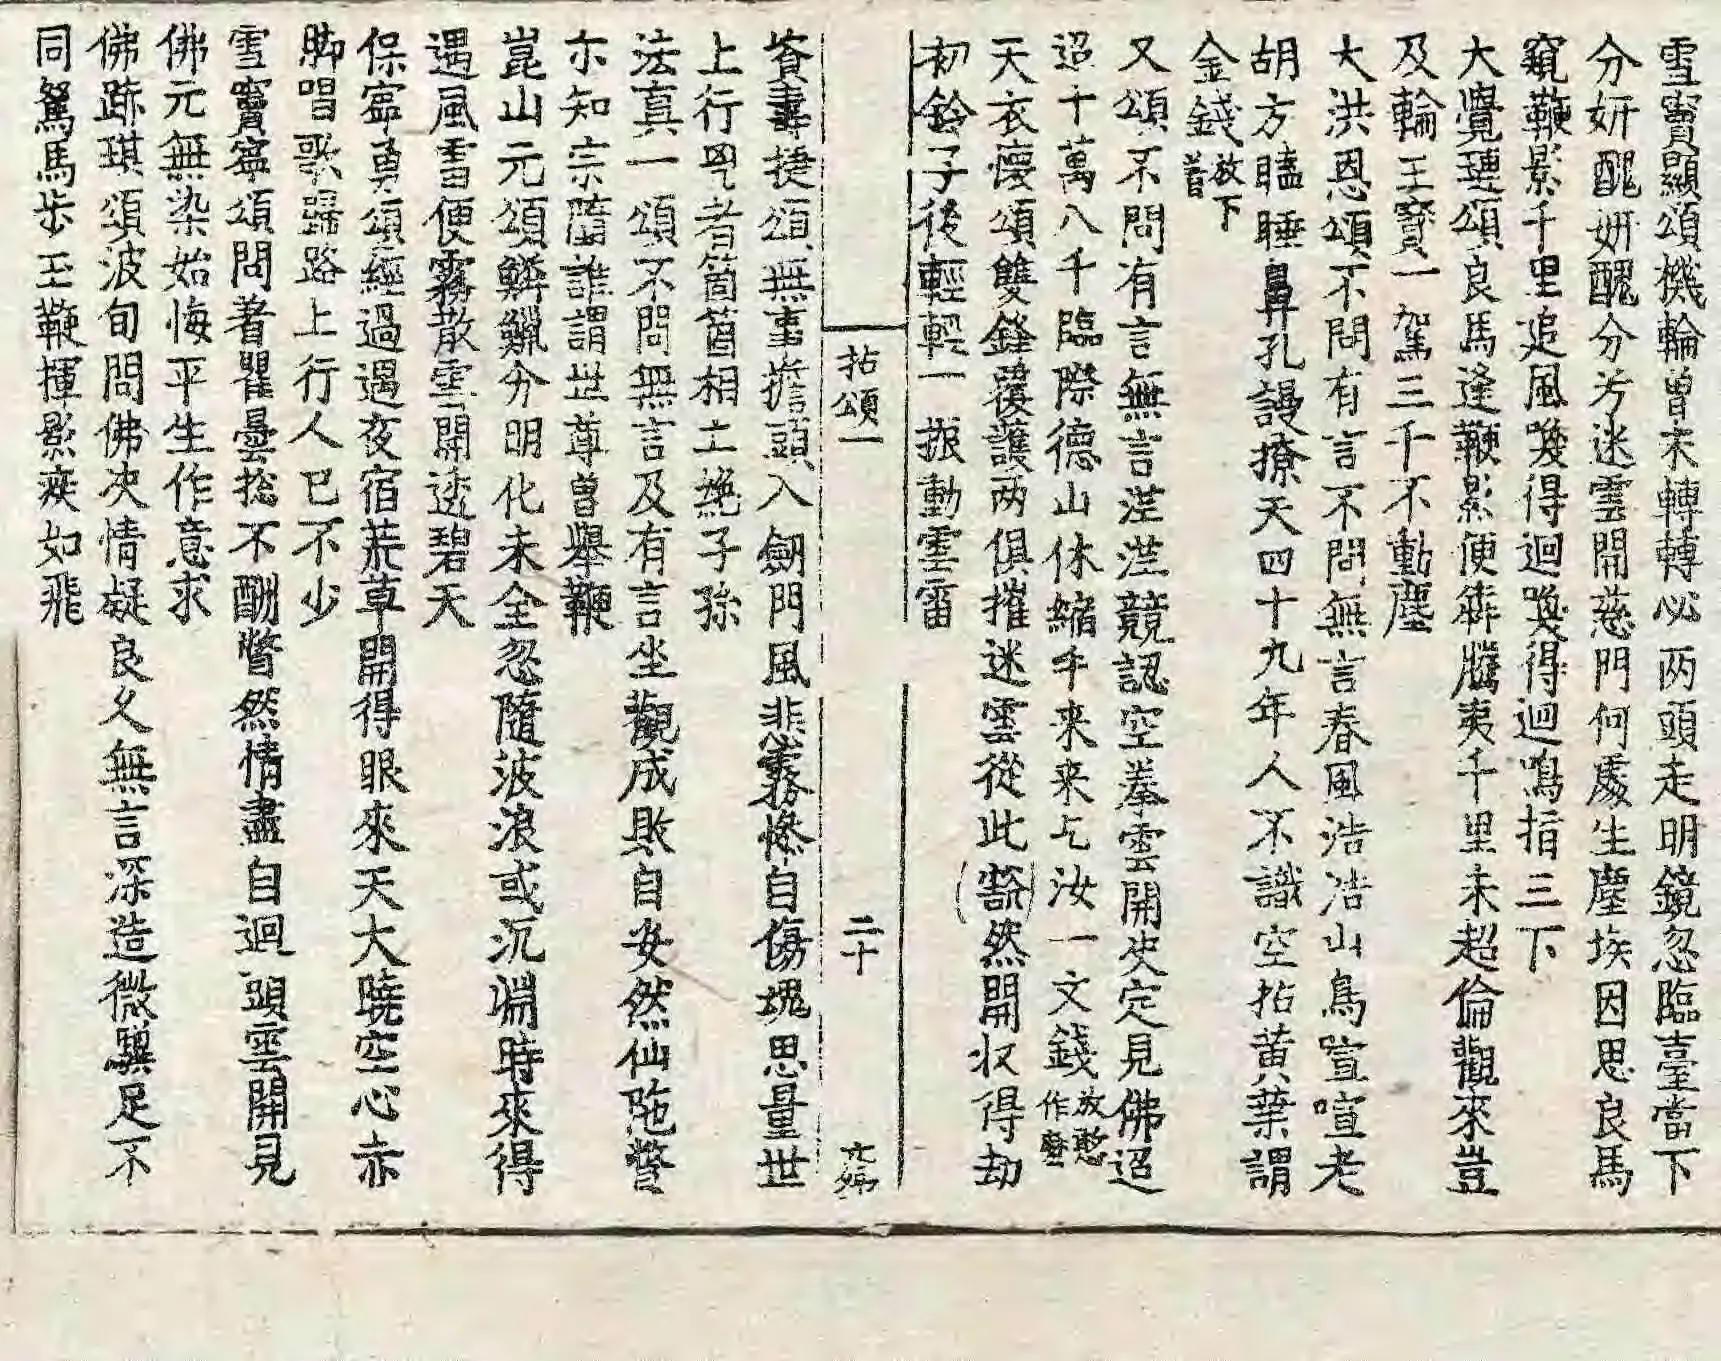 雪竇顯頌機輪曾未轉轉必兩頭走明鏡忽臨臺當下
分妍醜妍醜分兮迷雲開慈門何處生塵埃因思良馬
窺鞭影千里追風喚得迴喚得迴鳴指三下
大覺璉頌良馬逢鞭影便犇騰夷千里未超倫觀來豈
及輪王寶一駕三千不動塵
大洪恩頌不問有言不問無言春風浩浩山鳥喧喧老
胡方瞌睡鼻孔謾撩天四十九年人不識空拈黃葉謂
金錢放下著
又頌不問有言無言涩涩競認空拳雲開史定見佛迢
迢十萬八千臨際德山休縮手来来乞汝一文錢放憨作麼
天衣懷頌雙鋒覆護两俱摧迷雲從此豁然開収得劫
初鈴子後輕輕一振動雲雷
拈頌一
二十
薦夀捷頌無事擔頭入劒門風悲霧慘自傷魂思量世
上行咒者箇箇相土絶子孫
法真一頌不問無言及有言坐觀成敗自安然仙陁瞥
尒知宗隨誰謂世尊曾舉鞭
崑山元頌鱗獵分明化未全忽隨波浪或沉淵時來得
遇風雷便霧散雲開透碧天
保寧勇頌經過遇夜宿荒草開得眼來天大曉空心赤
脚唱歌歸路上行人已不少
雪竇寧頌問著瞿曇揔不酬瞥然情盡自迴頭雲開見
佛元無染始悔平生作意求
佛跡琪頌波旬問佛决情凝良久無言深造微驥足不
同駑馬步玉鞭揮影疾如飛